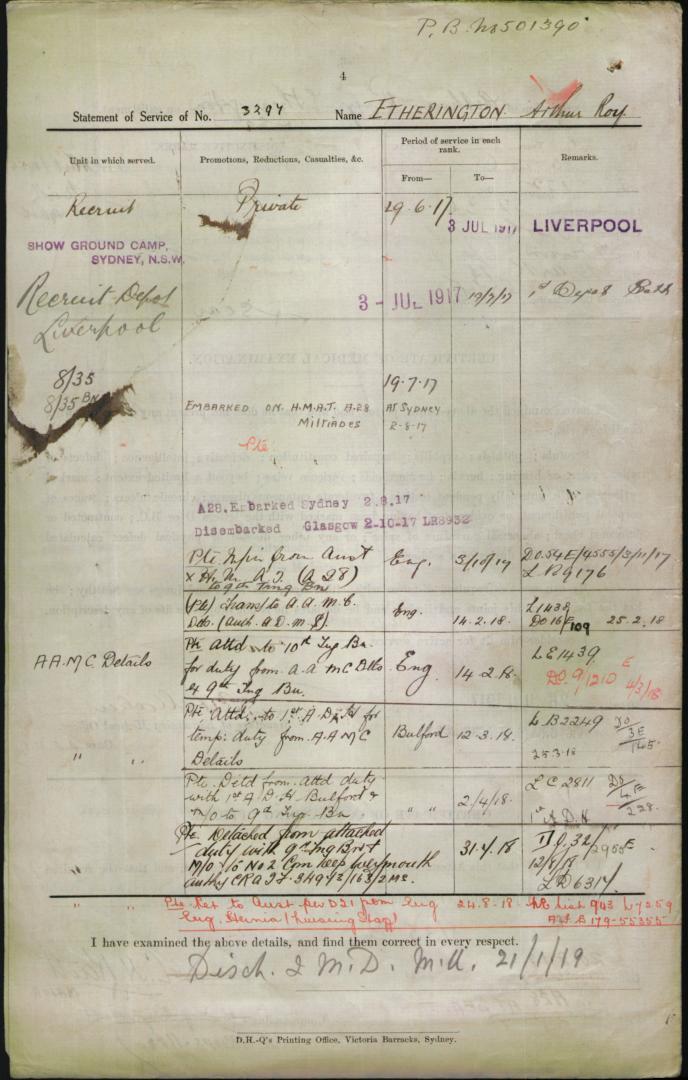 P.B. No 501390
4
Statement of Service of No. 3297 Name ETHERINGTON Arthur Roy
Unit in which served.
Promotions, Reductions, Casualties, &c.
Period of service in each rank.
From—
To—
Remarks.
Recruit Private 29.6.17 3 JUL 1917 LIVERPOOL
SHOW GROUND CAMP,
SYDNEY, N.S.W.
Recruit Depot 3 - JUL 1917
Liverpool
1st Depot Battn
8/35 19.7.17
8/35 Bn EMBARKED ON H.M.A.T. A.28 AT SYDNEY
MILTIADES 2-8-17
Pte
A28. Embarked Sydney 2.8.17
Disembarked Glasgow 2-10-17 LR8932
Pte from Aust Eng. 3/10/17 DO54E/4555/3/11/17
x H.M.A.T. (A28) LR9176
to 9th Trng Bn
(Pte) Transf to A.A.M.C. Eng. L1438
Dets. (Auth. A.D.M.S). 14.2.18. DO16E/109 25.2.18
AAMC Details Pte attd to 10th Trg Bn. LE1439
for duty from A.A.M.C Dtls Eng 14.2.18.
& 9th Trg Bn. DO.9/1210 E 4/3/18
" " Pte Attd. to 1st A.D.H for LB2249 DO
temp: duty from A.A.M.C Bulford 12.3.18. 3E
Details 25.3.18 145
Pte. Detd from attd duty LC2811 DO
with 1st A.D.H. Bulford & " " 2/4/18. 4E
M/O to 9th Trg Bn 1st A.D.H 228
Pte Detached from attached
duty with 9th Trng Bn & 31.7.18 DO.32/2955E
M/O to No 2 Com Dep Weymouth 12/8/18
auth CRAIF 34942/163/2Mc. LD6317.
" " Pte Ret to Aust per D21 from Eng 24.8.18. HB List 943 L7259
Eng. Hernia (Nursing Staff) A.I.F. B 179-55355
I have examined the above details, and find them correct in every respect.
Disch. 2 M.D. M.U. 21/1/19
D.H.-Q's Printing Office, Victoria Barracks, Sydney.